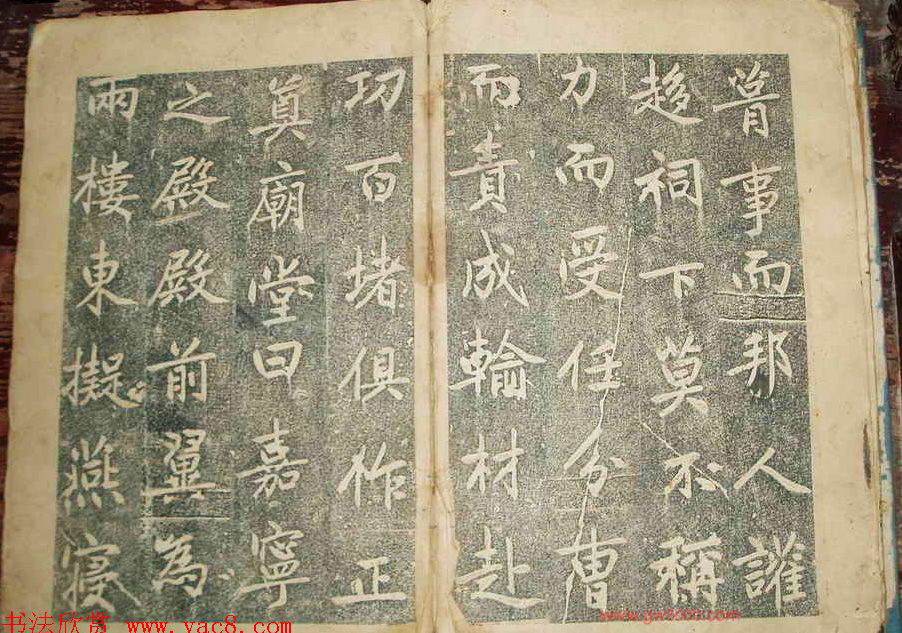 胥事而邦人讙
趍祠下莫不稱
力而受任分曹
而責成輸材赴
功百堵俱作正
奠廟堂曰嘉寧
之殿殿前翼為
兩樓東擬燕寢
书法欣赏 www.yac8.com